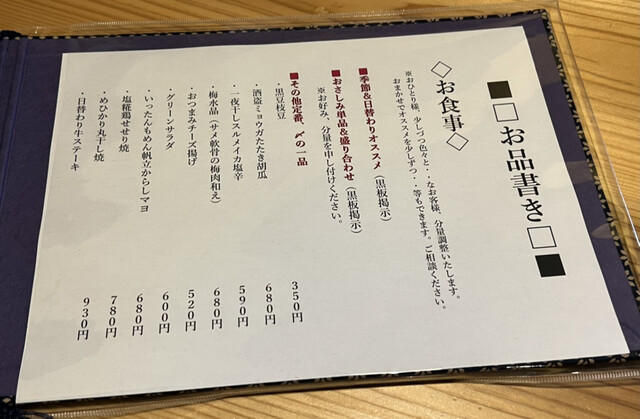 ■□お品書き□■
◇お食事◇
※おひとり様、少しづつ色々と・・なお客様、分量調整いたします。
おまかせでオススメを少しずつ・・等もできます。ご相談ください。
■季節&日替わりオススメ（黒板掲示）
■おさしみ単品&盛り合わせ（黒板掲示）
※お好み、分量を申し付けください。
■その他定番、〆の一品
・黒豆枝豆 350円
・酒盗ミョウガたたき胡瓜 680円
・一夜干スルメイカ塩辛 590円
・梅水晶（サメ軟骨の梅肉和え） 680円
・おつまみチーズ揚げ 520円
・グリーンサラダ 600円
・いったんもめん帆立からしマヨ 680円
・塩糀鶏せせり焼 680円
・めひかり丸干し焼 780円
・日替わり牛ステーキ 930円